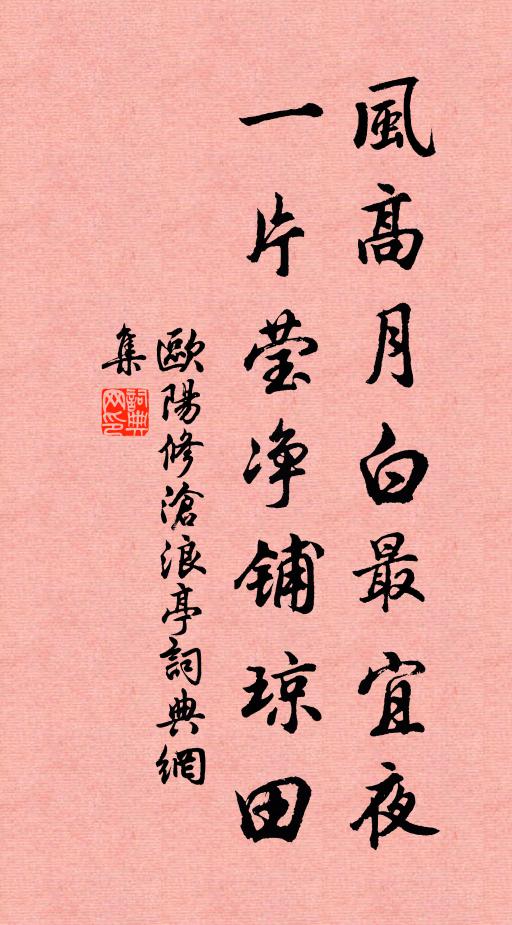 風高月白最宜夜
一片莹净铺琼田
歐陽修滄浪亭詞典網
集
詞典网印